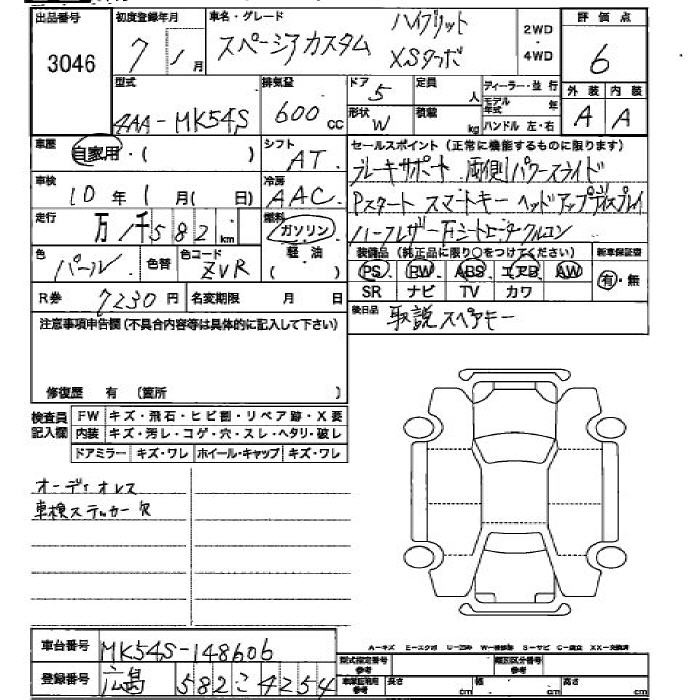 出品番号
3046
初度登録年月
7 / 1月
車名・グレード
スペーシアカスタム
ハイブリット
XSターボ
2WD
・
4WD
評価点
6
外装 内装
A A
型式
4AA-MK54S
排気量
600 cc
ドア
5
形状
W
定員
人
積載
kg
ディーラー・並行
モデル年式 年
ハンドル 左・右
車歴
自家用・( )
シフト
AT
セールスポイント (正常に機能するものに限ります)
ブレーキサポート 両側パワースライド
Pスタート スマートキー ヘッドアップディスプレイ
車検
10年1月( 日)
冷房
AAC
走行
万1千582km
燃料
ガソリン
軽・油
( )
色
パール
色替
色コード
ZVR
装備品 (純正品に限り○をつけてください)
PS PW ABS エアB AW
SR ナビ TV カワ
新車保証書
有・無
R券 7230円
名変期限 月 日
後日品
取説 スペアキー
注意事項申告欄(不具合内容等は具体的に記入して下さい)
修復歴 有 (箇所 )
検査員記入欄
FW キズ・飛石・ヒビ割・リペア跡・X要
内装 キズ・汚レ・コゲ・穴・スレ・ヘタリ・破レ
ドアミラー キズ・ワレ ホイール・キャップ キズ・ワレ
オーディオレス
車検ステッカー欠
車台番号 MK54S-148606
登録番号 広島 582こ4254
A-キズ E-エクボ
型式指定番号 参考
類別区分番号 参考
長さ cm 幅 cm 高さ cm